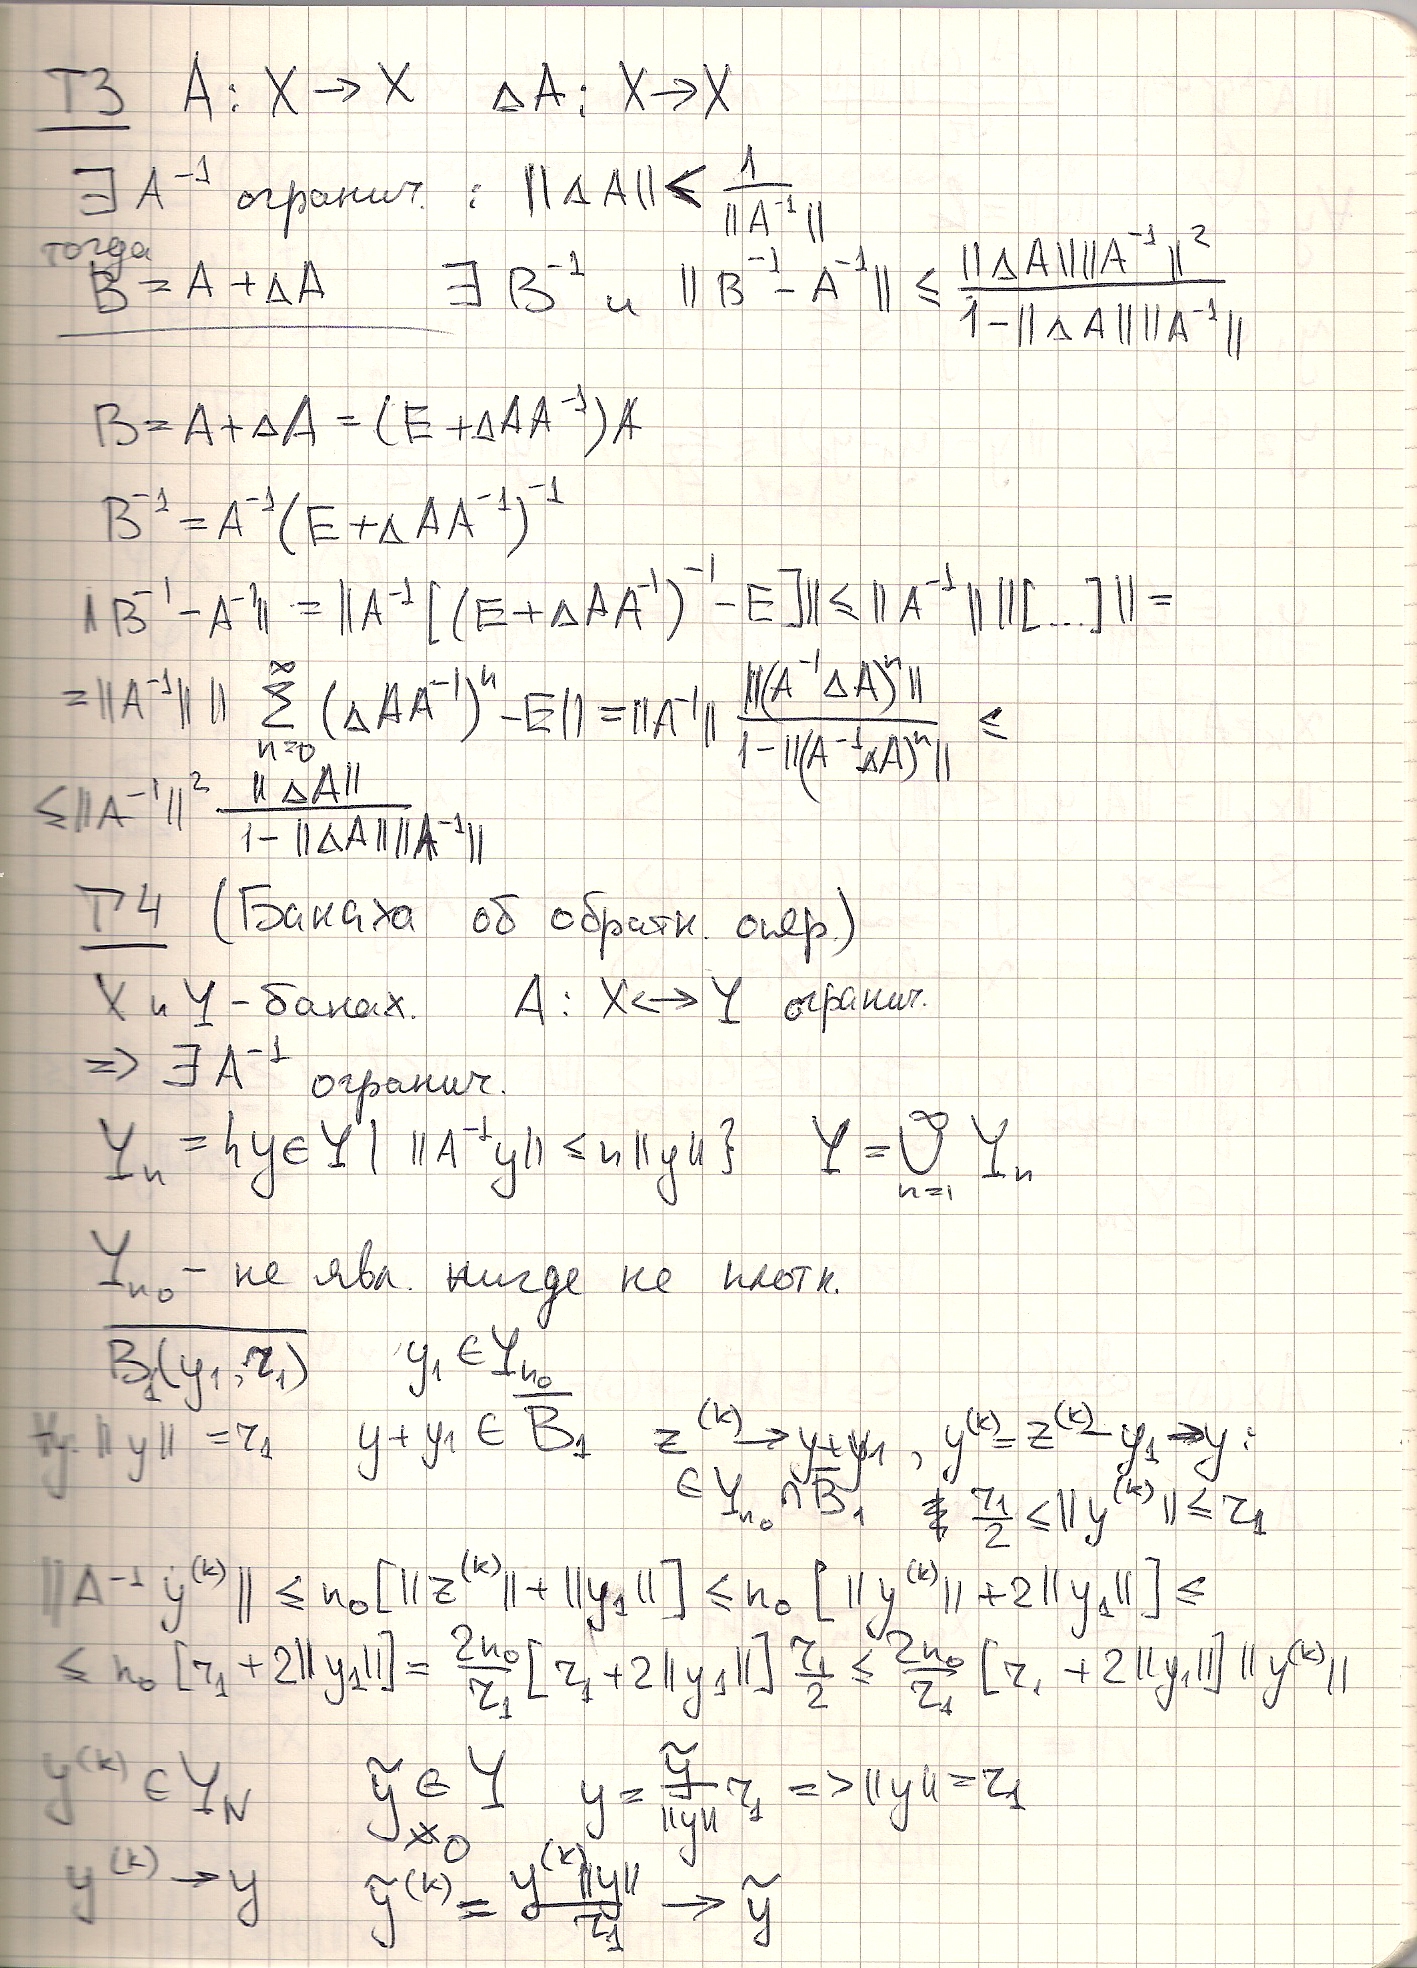 Т3 A: X → X ΔA: X → X
∃ A⁻¹ огранич. : ||ΔA|| < 1/||A⁻¹||
тогда
B = A + ΔA ∃ B⁻¹ и ||B⁻¹ - A⁻¹|| ≤ ||ΔA|| ||A⁻¹||² / (1 - ||ΔA|| ||A⁻¹||)
B = A + ΔA = (E + ΔAA⁻¹)A
B⁻¹ = A⁻¹(E + ΔAA⁻¹)⁻¹
||B⁻¹ - A⁻¹|| = ||A⁻¹[(E + ΔAA⁻¹)⁻¹ - E]|| ≤ ||A⁻¹|| ||[...]|| =
= ||A⁻¹|| || ∑_{n=0}^∞ (ΔAA⁻¹)ⁿ - E|| = ||A⁻¹|| ||(A⁻¹ΔA)ⁿ|| / (1 - ||(A⁻¹ΔA)ⁿ||) ≤
≤ ||A⁻¹||² ||ΔA|| / (1 - ||ΔA|| ||A⁻¹||)
Т4 (Банаха об обратн. опер.)
X и Y - банах. A: X ↔ Y огранич.
=> ∃ A⁻¹ огранич.
Yₙ = {y ∈ Y | ||A⁻¹y|| ≤ n||y||} Y = ⋃_{n=1}^∞ Yₙ
Y_{n₀} - не явл. нигде не плотн.
\overline{B₁(y₁, r₁)} y₁ ∈ Y_{n₀}
∀y: ||y|| = r₁ y + y₁ ∈ \overline{B₁} z^{(k)} → y + y₁, y^{(k)} = z^{(k)} - y₁ → y :
∈ Y_{n₀} ∩ \overline{B₁} r₁/2 ≤ ||y^{(k)}|| ≤ r₁
||A⁻¹y^{(k)}|| ≤ n₀[||z^{(k)}|| + ||y₁||] ≤ n₀[||y^{(k)}|| + 2||y₁||] ≤
≤ n₀[r₁ + 2||y₁||] = 2n₀/r₁ [r₁ + 2||y₁||] r₁/2 ≤ 2n₀/r₁ [r₁ + 2||y₁||] ||y^{(k)}||
y^{(k)} ∈ Y_N ỹ ∈ Y y = ỹ/||y|| r₁ => ||y|| = r₁
≠ 0
y^{(k)} → y ỹ^{(k)} = y^{(k)} ||y|| / r₁ → ỹ